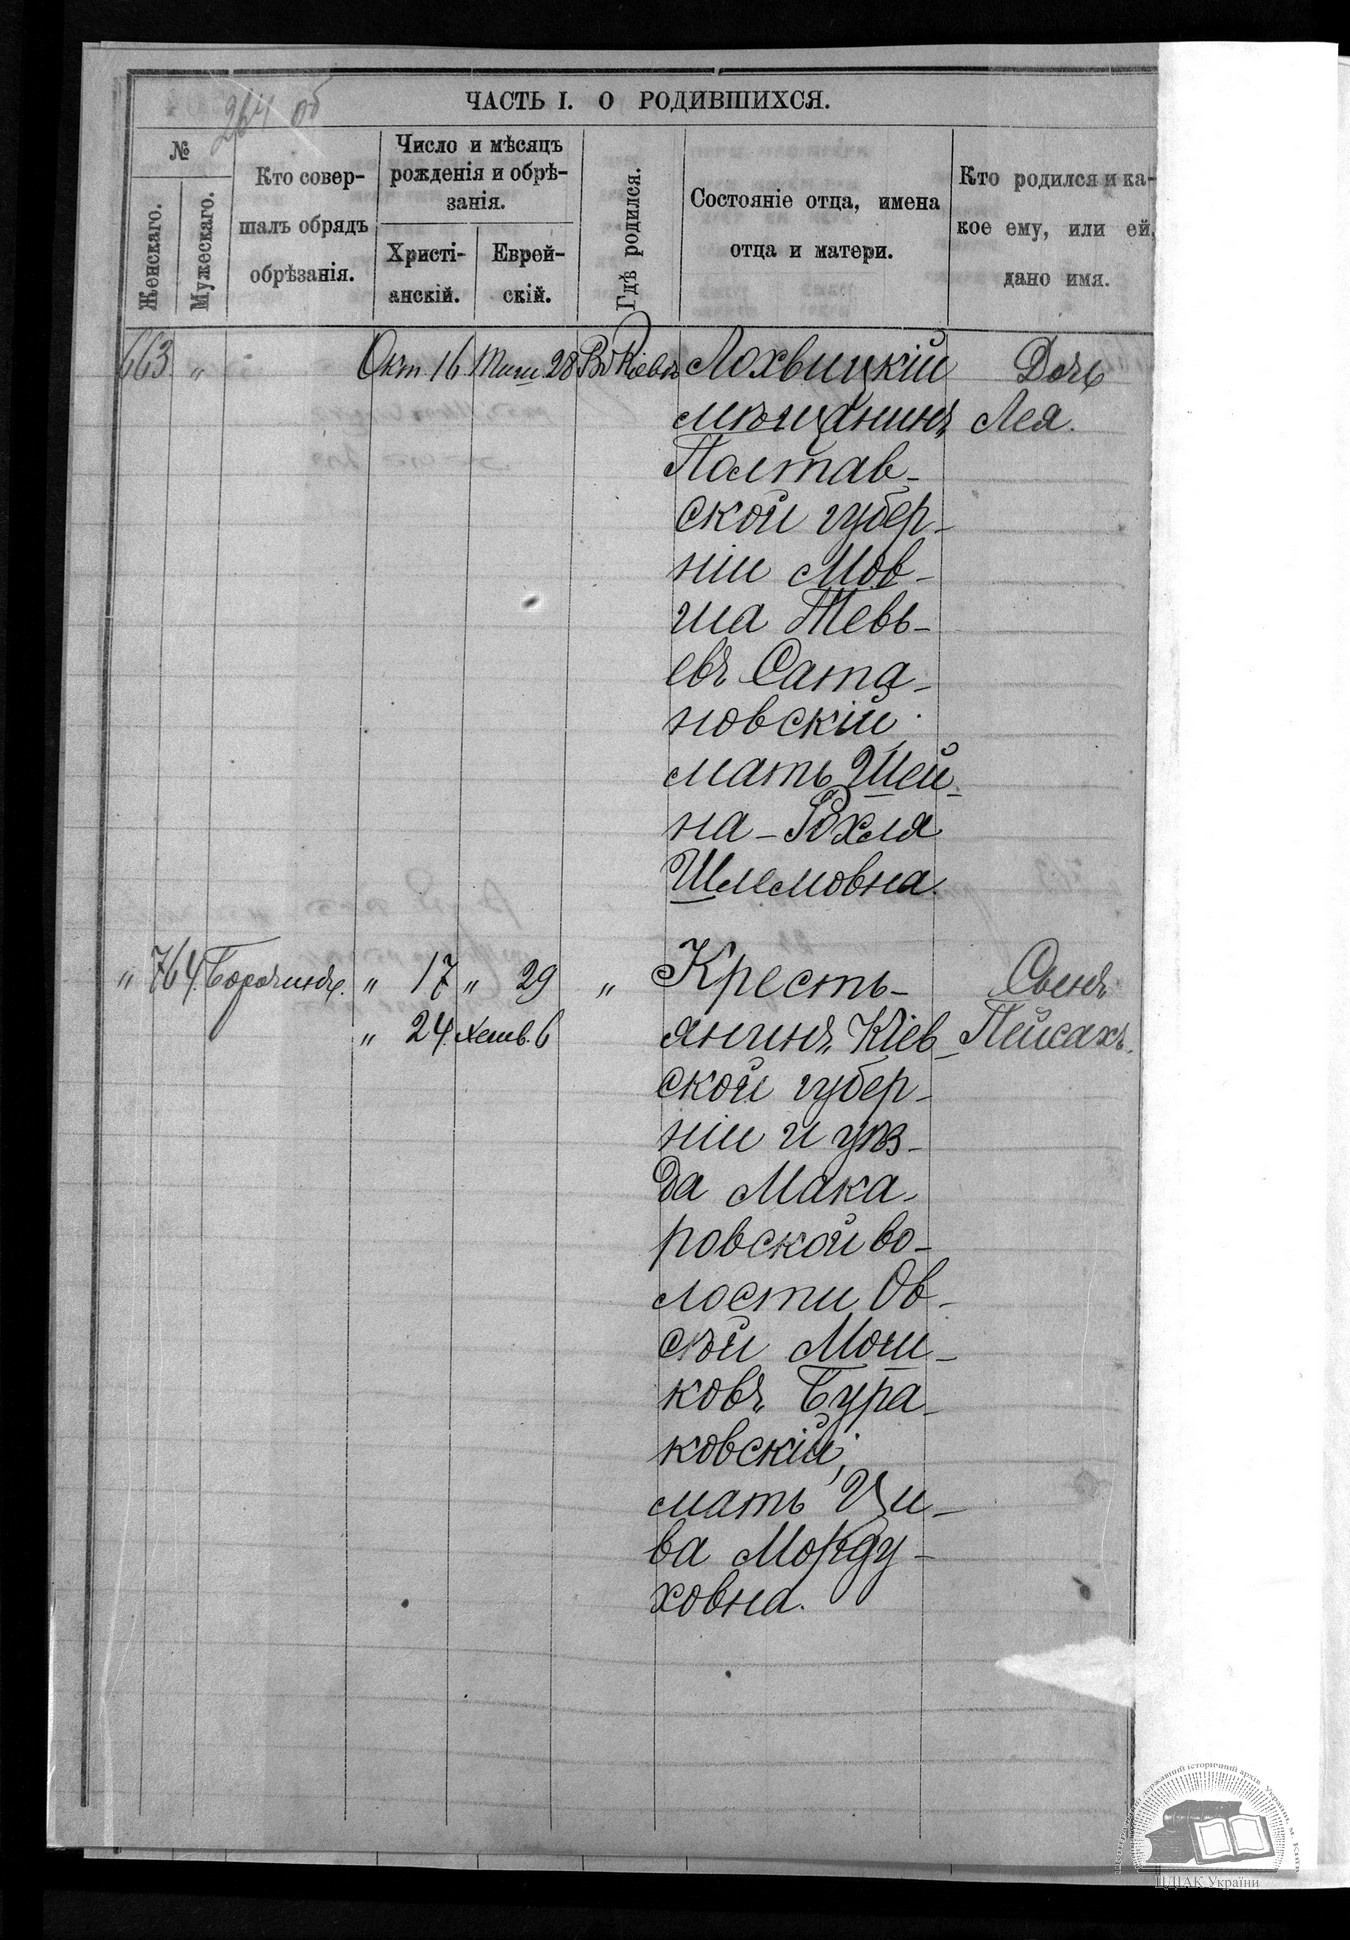 264 об
ЧАСТЬ I. О РОДИВШИХСЯ.
№
Женскаго.
Мужескаго.
Кто совер-
шалъ обрядъ
обрѣзанія.
Число и мѣсяцъ
рожденія и обрѣ-
занія.
Христі-
анскій.
Еврей-
скій.
Гдѣ родился.
Состояніе отца, имена
отца и матери.
Кто родился и ка-
кое ему, или ей,
дано имя.
663 „ Окт 16 Тиш 28 Въ Кіевѣ Лохвицкій Дочь
мѣщанинъ Лея.
Полтав-
ской губер-
ніи Мов-
ша Тевь-
евъ Сата-
новскій;
мать Шей-
на-Рохля
Шлемовна.
„ 764. Борочинъ. „ 17 „ 29 „ Кресть- Сынъ
„ 24. Хешв. 6 янинъ Кіев- Пейсахъ.
ской губер-
ніи и уѣз-
да Мака-
ровской во-
лости Ов-
сѣй Мош-
ковъ Бура-
ковскій;
мать Ци-
ва Морду-
ховна.
ЦДІАК України